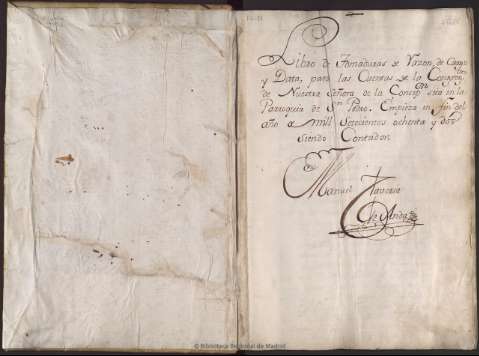 Libro de Tomaduras de Razon de Cargo
y Data, para las Cuentas de la Congregon
de Nuestra Señora de la Concepon sita en la
Parroquia de Sn Pedro. Empieza en fin del
año de mill Setecientos ochenta y dos
siendo Contador
Manuel
de
© Biblioteca Regional de Madrid